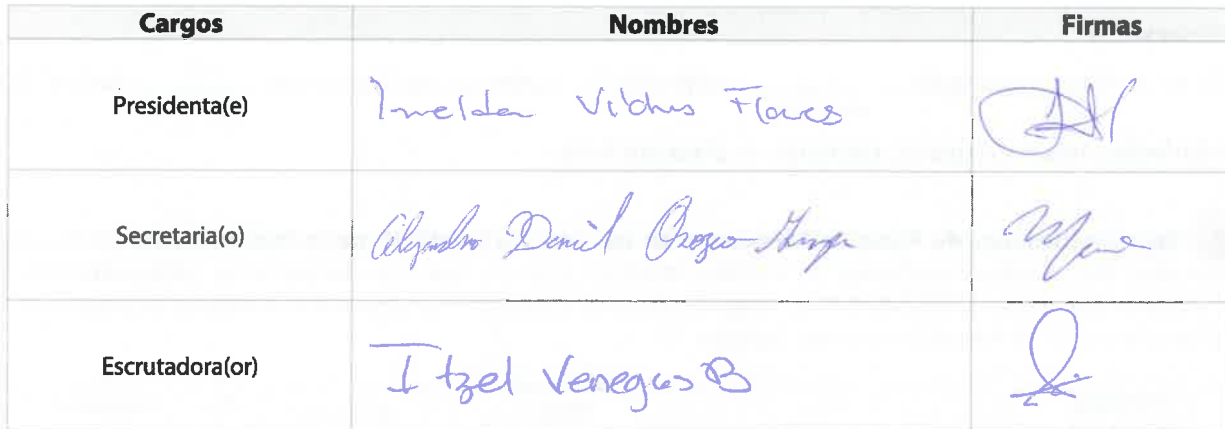 Cargos Nombres Firmas
Presidenta(e) Imelda Vilchis Flores
Secretaria(o) Alejandro Daniel Orozco
Escrutadora(or) Itzel Venegas B